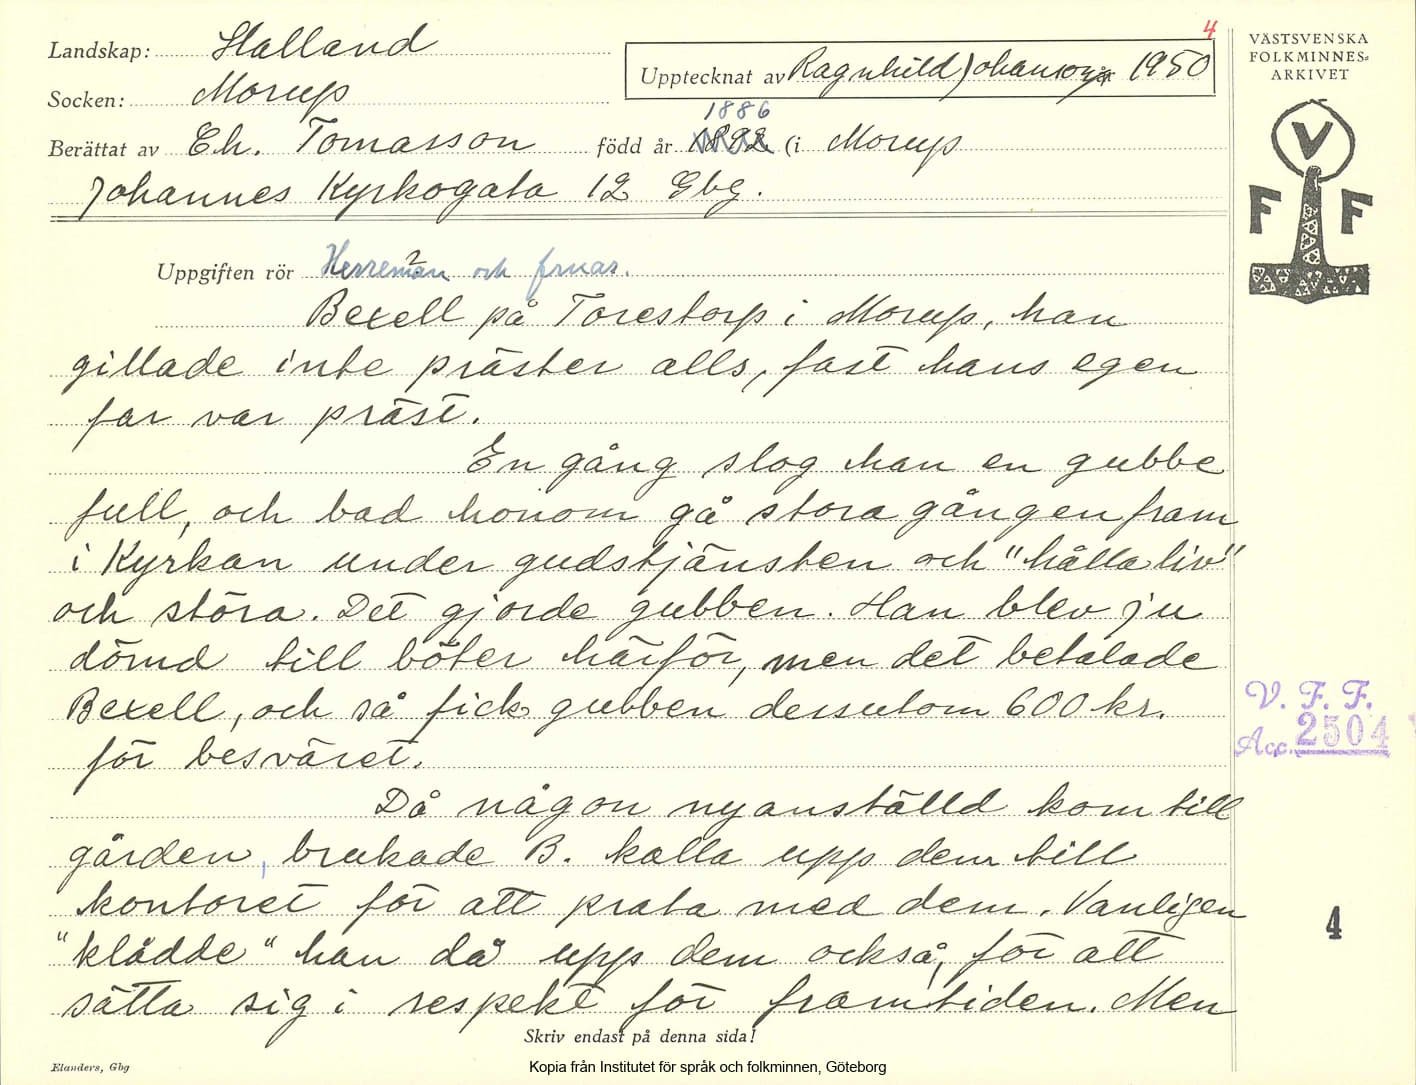 4
Landskap: Halland
Upptecknat av Ragnhild Johansson år 1950
VÄSTSVENSKA
FOLKMINNES-
ARKIVET
Socken: Morup
1886
Berättat av Ch. Tomasson född år 1892 (i Morup
Johannes Kyrkogata 12 Gbg.
V
F F
Uppgiften rör Herremän och fruar.
Bexell på Torestorp i Morup, han
gillade inte präster alls, fast hans egen
far var präst.
En gång slog han en gubbe
full, och bad honom gå stora gången fram
i Kyrkan under gudstjänsten och "hålla liv"
och störa. Det gjorde gubben. Han blev ju
dömd till böter härför, men det betalade
Bexell, och så fick gubben dessutom 600 kr.
för besväret.
V. F. F.
Acc. 2504
Då någon nyanställd kom till
gården, brukade B. kalla upp dem till
kontoret för att prata med dem. Vanligen
"klädde" han då upp dem också, för att
sätta sig i respekt för framtiden. Men
4
Skriv endast på denna sida!
Elanders, Gbg
Kopia från Institutet för språk och folkminnen, Göteborg